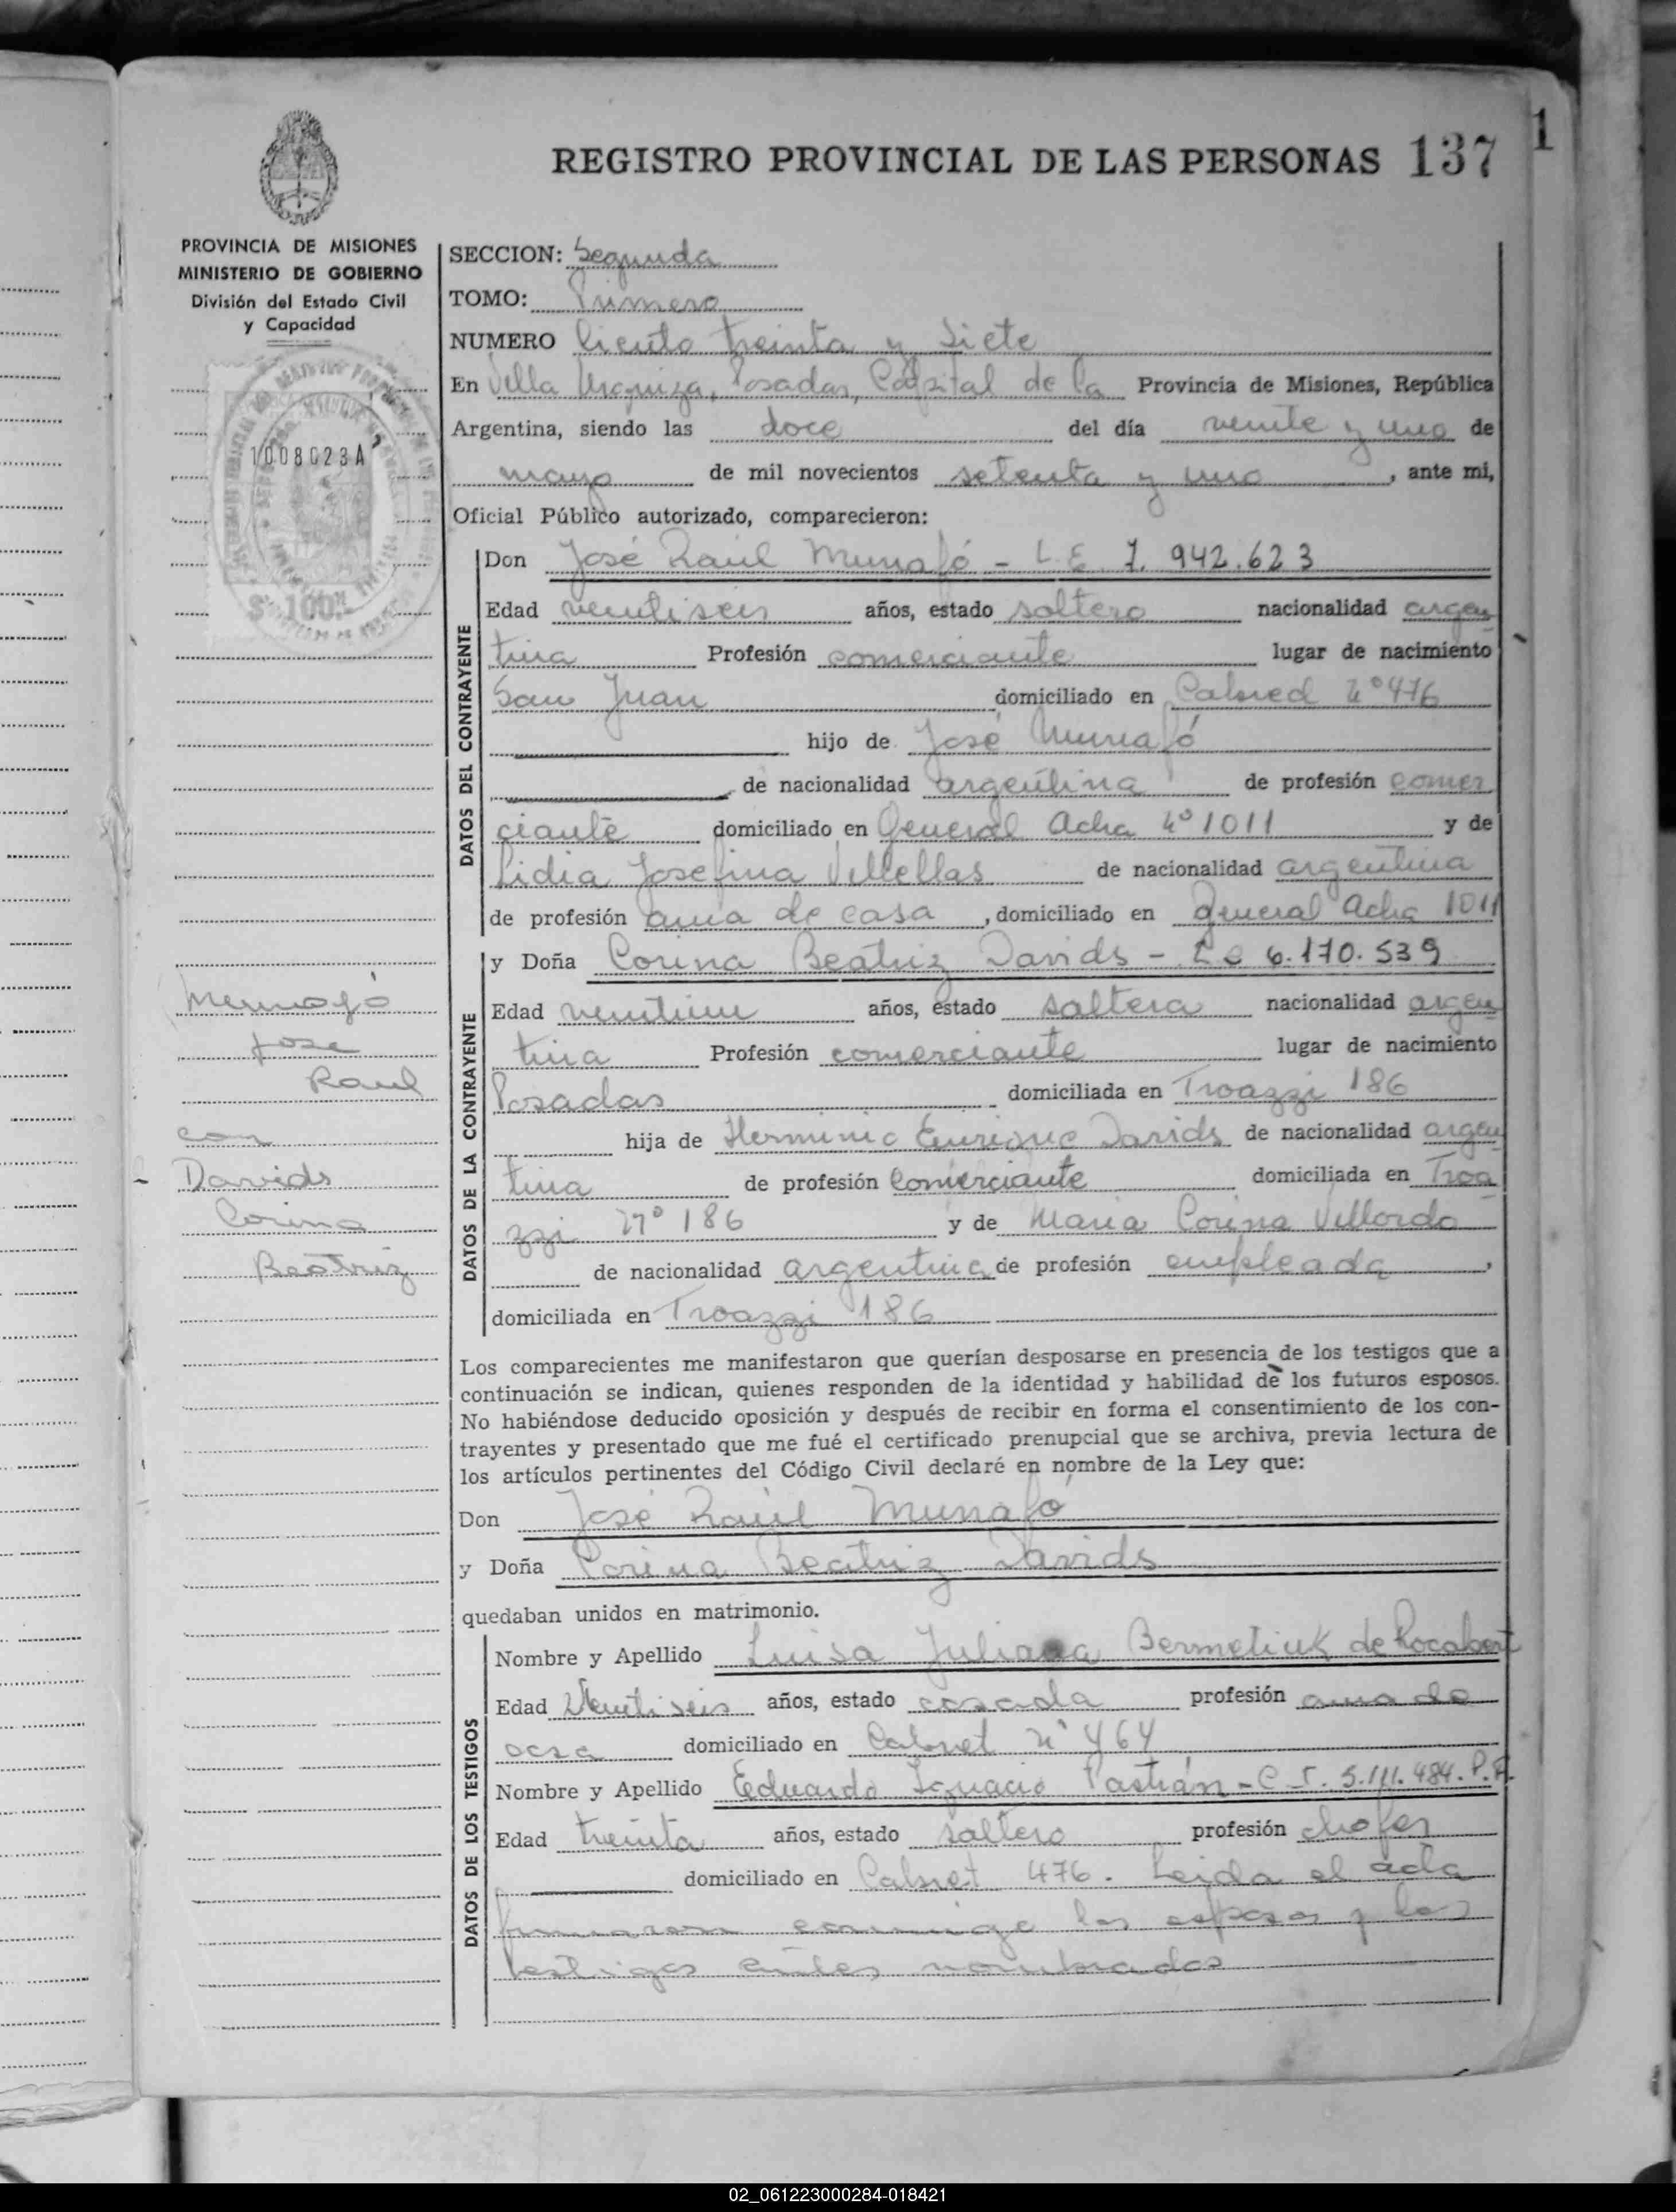 REGISTRO PROVINCIAL DE LAS PERSONAS 137
1
PROVINCIA DE MISIONES
MINISTERIO DE GOBIERNO
División del Estado Civil
y Capacidad
1008023A
$ 100.
SECCION: Segunda
TOMO: Primero
NUMERO Ciento treinta y Siete
En Villa Urquiza, Posadas, Capital de la Provincia de Misiones, República
Argentina, siendo las doce del día veinte y uno de
mayo de mil novecientos setenta y uno, ante mi,
Oficial Público autorizado, comparecieron:
DATOS DEL CONTRAYENTE
Don José Raúl Munafó - L.E. 7.942.623
Edad veintiseis años, estado soltero nacionalidad argen
tina Profesión comerciante lugar de nacimiento
San Juan domiciliado en Cabred Nº 476
hijo de José Munafó
de nacionalidad argentina de profesión comer
ciante domiciliado en General Acha Nº 1011 y de
Lidia Josefina Villellas de nacionalidad argentina
de profesión ama de casa, domiciliado en General Acha 1011
DATOS DE LA CONTRAYENTE
y Doña Corina Beatriz Davids - L.C 6.170.539
Edad veintiun años, estado soltera nacionalidad argen
tina Profesión comerciante lugar de nacimiento
Posadas domiciliada en Troazzi 186
hija de Herminio Enrique Davids de nacionalidad argen
tina de profesión Comerciante domiciliada en Troa
zzi Nº 186 y de Maria Corina Villordo
de nacionalidad argentina de profesión empleada,
domiciliada en Troazzi 186
Munafó
Jose
Raul
con
Davids
Corina
Beatriz
Los comparecientes me manifestaron que querían desposarse en presencia de los testigos que a
continuación se indican, quienes responden de la identidad y habilidad de los futuros esposos.
No habiéndose deducido oposición y después de recibir en forma el consentimiento de los con-
trayentes y presentado que me fué el certificado prenupcial que se archiva, previa lectura de
los artículos pertinentes del Código Civil declaré en nombre de la Ley que:
Don José Raúl Munafó
y Doña Corina Beatriz Davids
quedaban unidos en matrimonio.
DATOS DE LOS TESTIGOS
Nombre y Apellido Luisa Juliana Bermetiuk de Rocabert
Edad Veintiseis años, estado casada profesión ama de
casa domiciliado en Cabret Nº 464
Nombre y Apellido Eduardo Ignacio Pastrán - C.I. 5.111.484. P.F.
Edad treinta años, estado soltero profesión chofer
domiciliado en Cabret 476. Leida el acta
firmaron conmigo los esposos y los
testigos antes nombrados
02_061223000284-018421